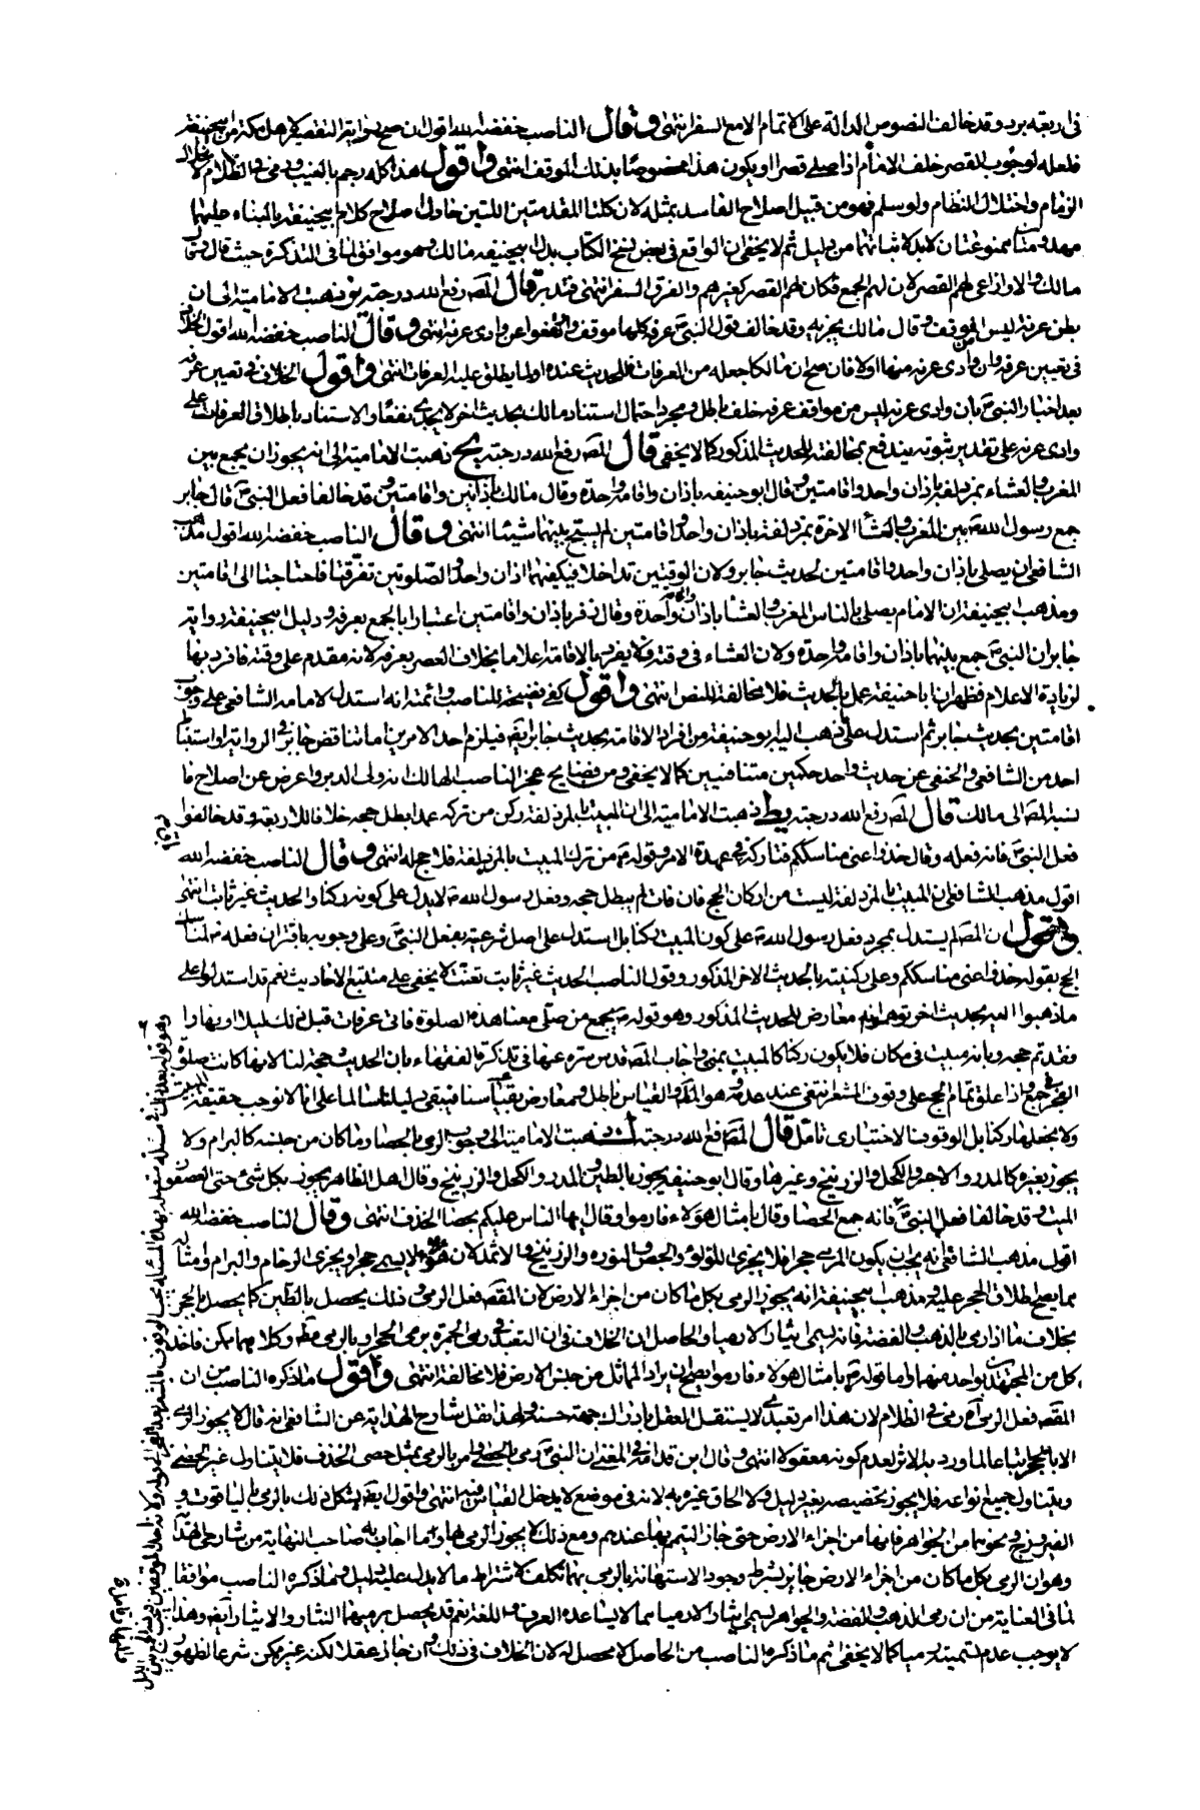 في اربعة برد وقد خالف النصوص الدالة على الاتمام الا مع السفر انتهى وقال الناصب خفضه الله اقول ان صح رواية التقصير لاهل مكة من ابيحنيفة
فلعله لوجوب القصر خلف الامام اذا صلى قصرا او يكون هذا مخصوصا بذلك الموقف انتهى واقول هذا كله رجم بالغيب ورمي في الظلام
الزمام واختلال النظام ولو سلم فهو من قبيل اصلاح الفاسد بمثله لان كلتا المقدمتين اللتين حاول اصلاح كلام ابيحنيفة بالبناء عليهما
ممنوعتان لابد لاثباتهما من دليل ثم لا يخفى ان الواقع في بعض نسخ الكتاب بدل ابيحنيفة مالك وهو موافق لما في التذكرة حيث قال وقال
مالك والاوزاعي لهم القصر لان لهم الجمع فكان لهم القصر كغيرهم والفرق السفر انتهى فتدبر قال المص رفع الله درجته يز ذهبت الامامية الى ان
بطن عرنة ليس الموقف وقال مالك يجزيه وقد خالف قول النبي ص عرفة كلها موقف وارتفعوا عن وادي عرنة انتهى وقال الناصب خفضه الله اقول الخلاف
في تعيين عرفة وان وادي عرنة منها او لا فان صح ان مالكا جعله من العرفات فللحديث عنده او لما يطلق عليه العرفات انتهى واقول الخلاف في تعيين عرفة
بعد اخبار النبي ص بان وادي عرنة ليس من مواقف عرفة خلف باطل ومجرد احتمال استناد مالك بحديث اخر لا يجدي نفعا والاستناد باطلاق العرفات على
وادي عرنة على تقدير ثبوته يندفع بمخالفته للحديث المذكور كما لا يخفى قال المص رفع الله درجته يح ذهبت الامامية الى انه يجوز ان يجمع بين
المغرب والعشاء بمزدلفة باذان واحد واقامتين وقال ابو حنيفه باذان واقامة واحدة وقال مالك باذانين واقامتين وقد خالفا فعل النبي ص قال جابر
جمع رسول الله ص بين المغرب والعشاء الاخرة بمزدلفة باذان واحد واقامتين لم يسبح بينهما شيئا انتهى وقال الناصب خفضه الله اقول مذهب
الشافعي ان يصلي باذان واحد واقامتين لحديث جابر ولان الوقتين تداخلا فيكفيهما اذان واحد والصلوتين تفرقتا فاحتاجتا الى اقامتين
ومذهب ابيحنيفة ان الامام يصلي بالناس المغرب والعشاء باذان واقامة واحدة وقال زفر باذان واقامتين اعتبارا بالجمع بعرفة ودليل ابيحنيفة رواية
جابر ان النبي ص جمع بينهما باذان واقامة واحدة ولان العشاء في وقته فلا يفرد بالاقامة اعلاما بخلاف العصر بعرفة لانه مقدم على وقته فافرد بها
لزيادة الاعلام فظهر ان ابا حنيفة عمل بالحديث فلا مخالفة للنص انتهى واقول كفى فضيحة للناصب وائمته انه استدل لامامه الشافعي على وجوب
اقامتين بحديث جابر ثم استدل على ما ذهب اليه ابو حنيفة من افراد الاقامة بحديث جابر ايضه فيلزم احد الامرين اما تناقض جابر في الرواية او استنباط
احد من الشافعي والحنفي عن حديث واحد حكمين متنافيين كما لا يخفى ومن فضايح عجز الناصب الهالك انه ولى الدبر واعرض عن اصلاح ما
نسبه المص الى مالك قال المص رفع الله درجته يط ذهبت الامامية الى ان المبيت بالمزدلفة ركن من تركه عمدا بطل حجه خلافا للاربعة وقد خالفوا
فعل النبي ص فانه فعله وقال خذوا عني مناسككم فتاركه في عهدة الامر وقوله ص من ترك المبيت بالمزدلفة فلا حج له انتهى وقال الناصب خفضه الله
اقول مذهب الشافعي ان المبيت بالمزدلفة ليست من اركان الحج فان فات لم يبطل حجه وفعل رسول الله ص لا يدل على كونه ركنا والحديث غير ثابت انتهى
واقول ان المص لم يستدل بمجرد فعل رسول الله ص على كون المبيت ركنا بل استدل على اصل شرعيته بفعل النبي ص وعلى وجوبه باقتران فعله ص لمناسك
الحج بقوله خذوا عني مناسككم وعلى ركنيته بالحديث الاخر المذكور وقول الناصب الحديث غير ثابت تعنت لا يخفى على متتبع الاحاديث نعم قد استدلوا على
ما ذهبوا اليه بحديث اخر توهموا انه معارض للحديث المذكور وهو قوله ص بجمع من صلى معنا هذه الصلوة فاتى عرفات قبل ذلك ليلا او نهارا
وفقد تم حجه وبانه مبيت في مكان فلا يكون ركنا كالمبيت بمنى واجاب المص قدس سره عنها في تذكرة الفقهاء بان الحديث حجة لنا لانها كانت صلوة
الفجر بجمع واذا علق تمام الحج على وقوف المشعر انتفى عند عدمه وهو المط والقياس باطل ومعارض بقياسنا فيبقى دليلنا سالما على انا لا نوجب حقيقة المبيت
ولا نجعلها ركنا بل الوقوف الاختياري تامل قال المص رفع الله درجته ذهبت الامامية الى وجوب الرمي بالحصا وما كان من جنسه كالبرام ولا
يجوز بغيره كالمدر والاجر والكحل والزرنيخ وغيرها وقال ابو حنيفة يجوز بالطين والمدر والكحل والزرنيخ وقال اهل الظاهر يجوز بكل شئ حتى العصفور
الميت وقد خالفا فعل النبي ص فانه جمع الحصا وقال بامثال هؤلاء فارموا وقال ايها الناس عليكم بحصا الخذف انتهى وقال الناصب خفضه الله
اقول مذهب الشافعي انه يجب ان يكون المرمي حجرا فلا يجزي اللؤلؤ والجص والنوره والزرنيخ والاثمد لان هؤلاء لا يسمى حجرا ويجزي الرخام والبرام وامثاله
مما يصح اطلاق الحجر عليه ومذهب ابيحنيفة انه يجوز الرمي بكل ما كان من اجزاء الارض لان المقصد فعل الرمي وذلك يحصل بالطين كما يحصل بالحجر
بخلاف ما اذا رمى بالذهب والفضة فانه يسمى نثارا لا رميا والحاصل ان الخلاف في ان التعبد في رمي الجمرة برمي الحجر او بالرمي مطلقا وكلاهما ممكن فاخذ
كل من المجتهدين بواحد منهما واما قوله ص بامثال هؤلاء فارموا يصح ان يراد المماثل من جنس الارض فلا مخالفة انتهى واقول ما ذكره الناصب من ان
المقصد فعل الرمي رمي في الظلام لان هذا امر تعبدي لا يستقل العقل بادراك جهة حسنه ولهذا نقل شارح الهداية عن الشافعي انه قال لا يجوز الرمي
الا بالحجر اتباعا لما ورد به الاثر لعدم كونه معقولا انتهى وقال ابن قدامة في المغني ان النبي ص رمى بالحصى وامر بالرمي بمثل حصى الخذف فلا يتناول غير الحصى
ويتناول جميع انواعه فلا يجوز تخصيصه بغير دليل ولا الحاق غيره به لانه في موضع لا يدخل القياس فيه انتهى واقول ايضه يشكل ذلك بالرمي بالياقوت و
الفيروزج ونحوهما من الجواهر فانها من اجزاء الارض حتى جاز التيمم بها عندهم ومع ذلك لا يجوز الرمي بها واما اجاب به صاحب النهاية من شارحي الهداية
وهو ان الرمي بكل ما كان من اجزاء الارض جائز بشرط وجود الاستهانة بالرمي بها تكلف لاشتراط ما لا يدل عليه دليل وما ذكره الناصب موافقا
لما في العناية من ان رمي الذهب والفضة والجواهر يسمى ايثارا لا رميا مما لا يساعده العرف واللغة نعم قد يحصل برميهما النثار والايثار ايضه وهذا
لا يوجب عدم تسميته رميا كما لا يخفى ثم ما ذكره الناصب من الحاصل لا محصل له لان الخلاف في ذلك وان جاز عقلا لكنه غير ممكن شرعا لظهور